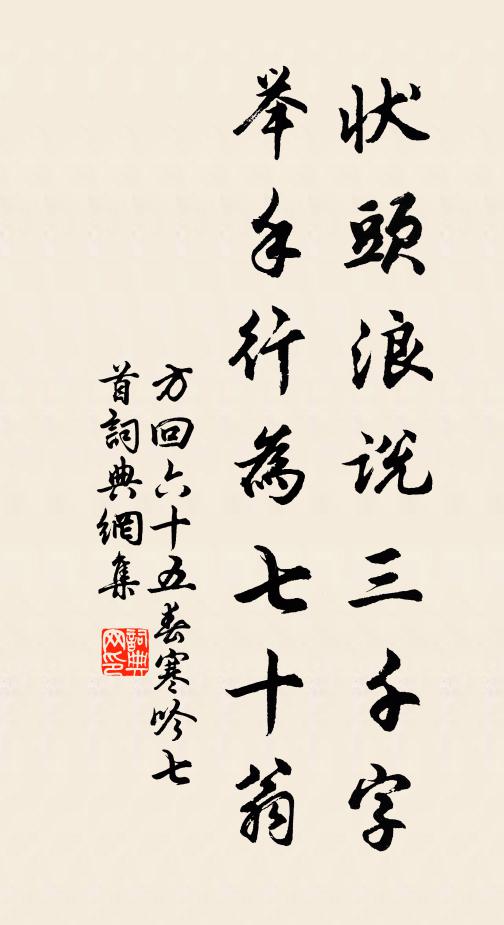 状頭浪说三千字
举手行為七十翁
方回六十五春寒吟七
首詞典網集
詞典网印